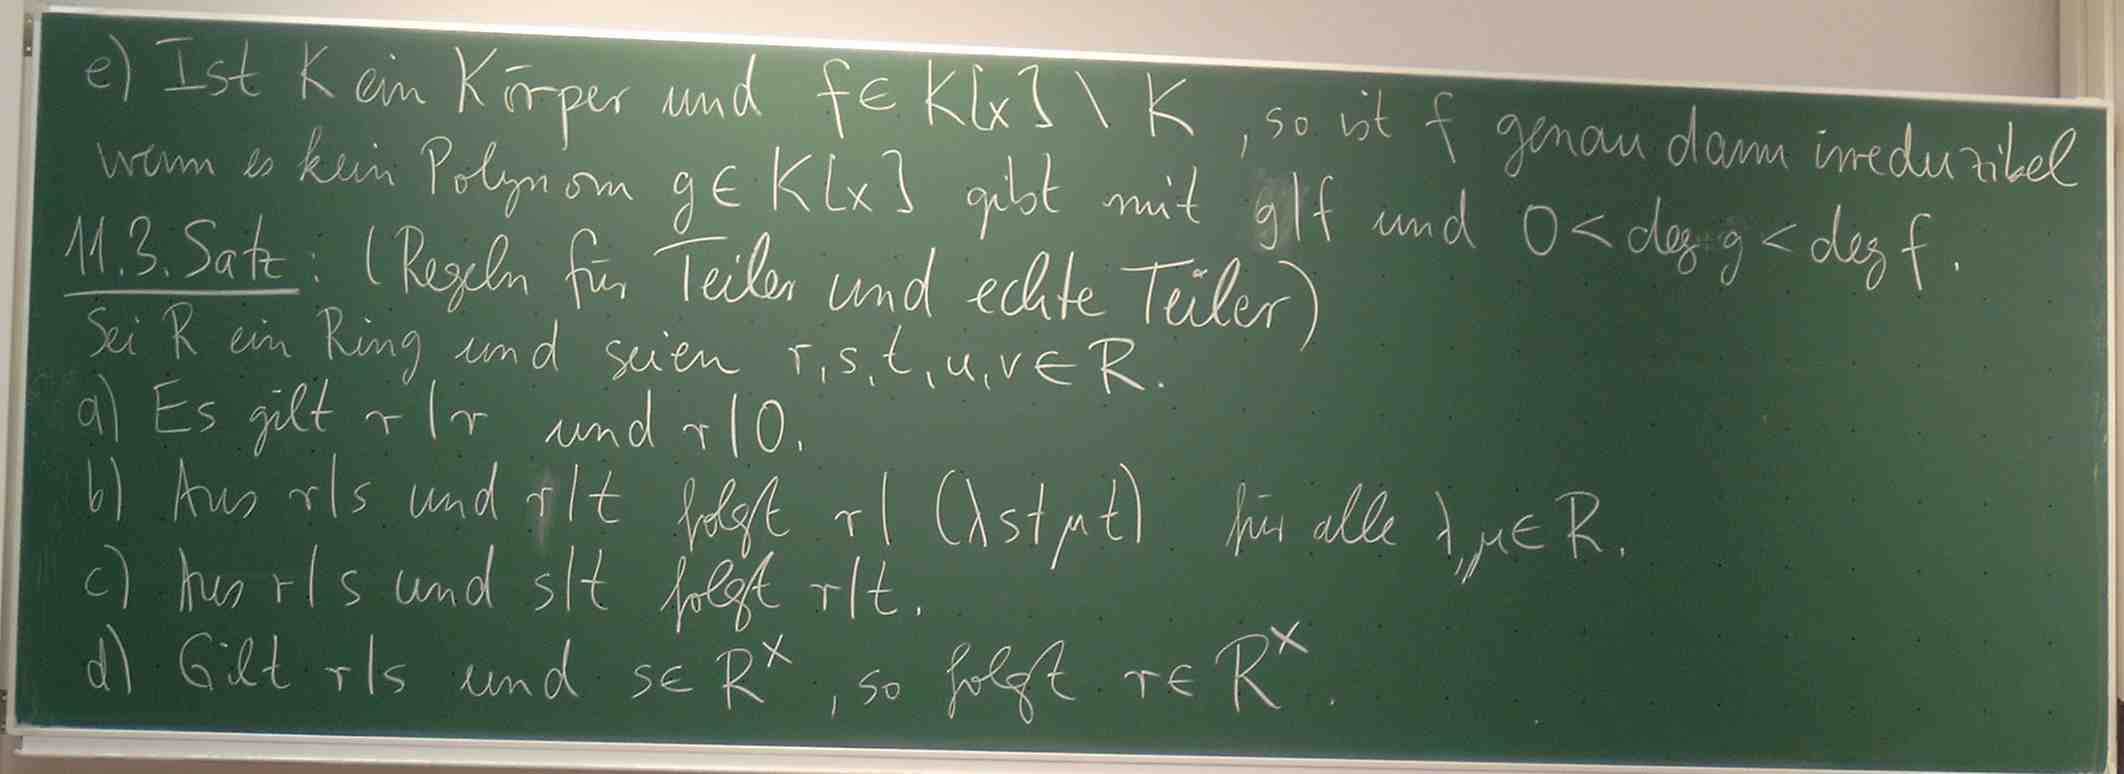 e) Ist K ein Körper und f ∈ K[x] \ K, so ist f genau dann irreduzibel
wenn es kein Polynom g ∈ K[x] gibt mit g|f und 0 < deg g < deg f.
11.3. Satz: (Regeln für Teiler und echte Teiler)
Sei R ein Ring und seien r, s, t, u, v ∈ R.
a) Es gilt r|r und r|0.
b) Aus r|s und r|t folgt r|(λs+μt) für alle λ, μ ∈ R.
c) Aus r|s und s|t folgt r|t.
d) Gilt r|s und s ∈ R^×, so folgt r ∈ R^×.